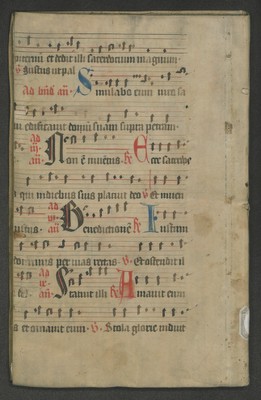 et dedit illi sacerdotum magnum
gustus ut pal
ad bnd̄ an̄. Similabo eum uiro sa
edificauit domū suam supra petram
ad iii. an̄. Non ē inuētus. R̄ Ecce sacerdos
qui in diebus suis placuit deo ℣ Et inuen
ad vi. an̄ Benedictionē R̄ Iustum
per uias rectas. ℣. Et ostendit il
ad ix. an̄. Statuit illi R̄ Amauit eum
et ornauit eum. ℣. Stola glorie induit